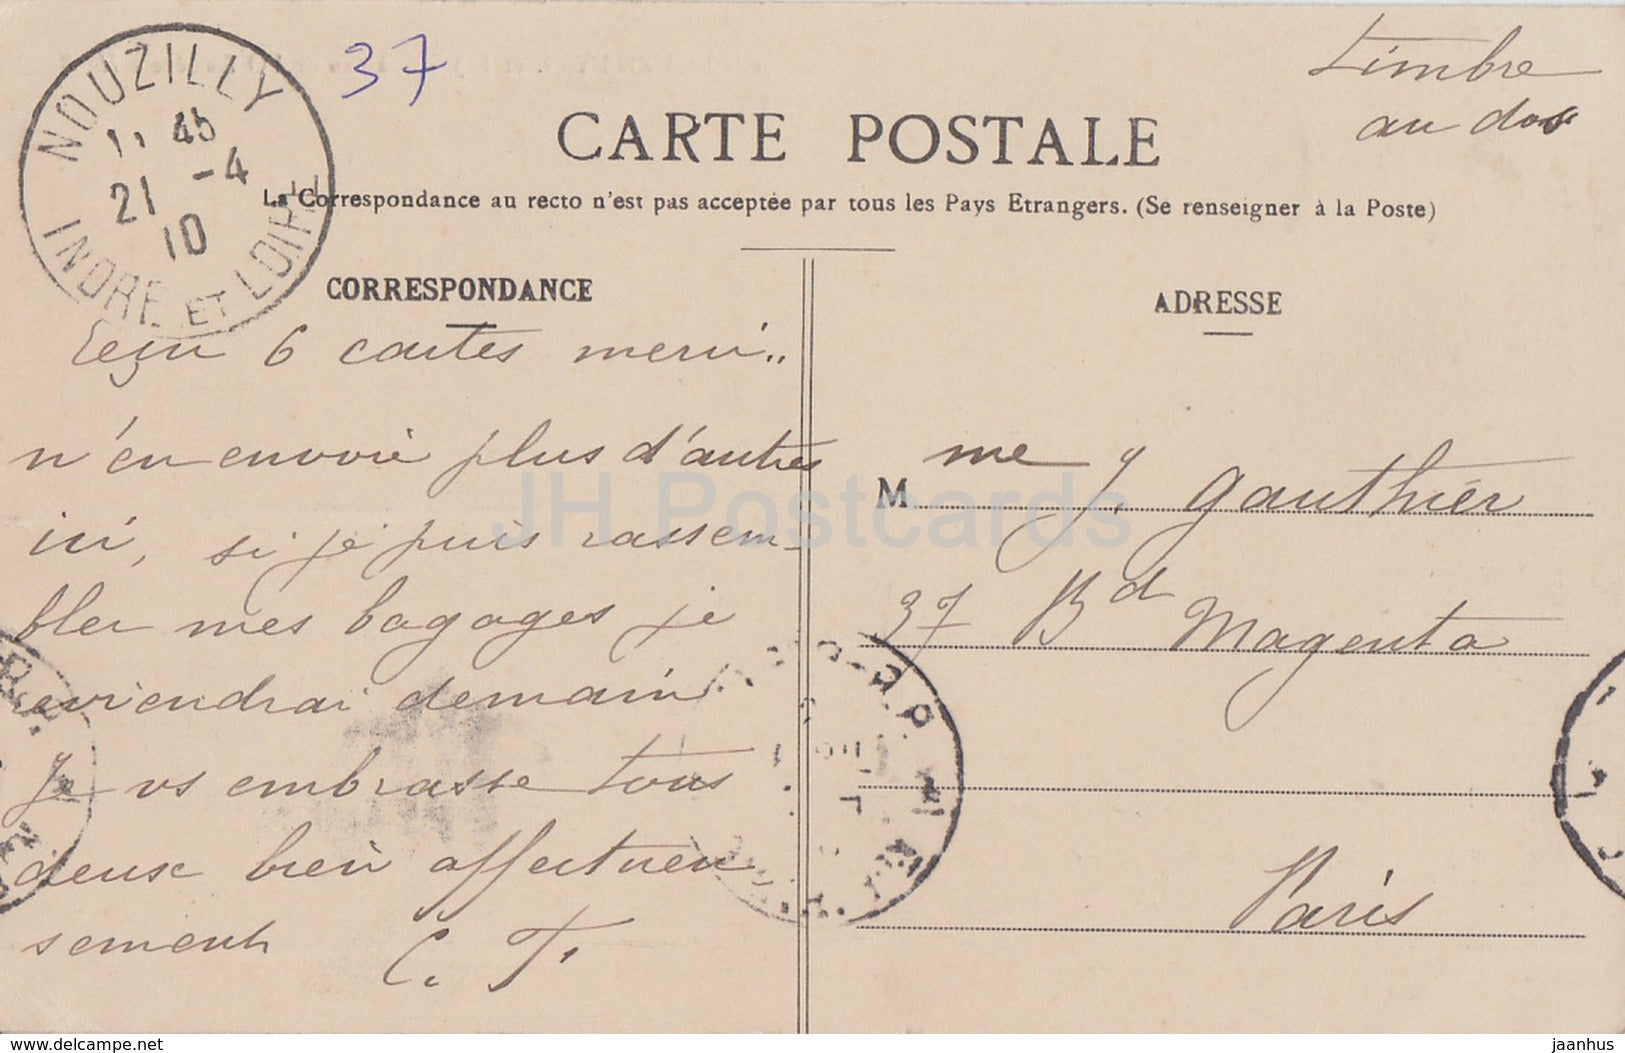 NOUZILLY
11 45
21 -4
10
INDRE ET LOIRE
37
Timbre
au dos
CARTE POSTALE
La Correspondance au recto n'est pas acceptée par tous les Pays Etrangers. (Se renseigner à la Poste)
CORRESPONDANCE
Reçu 6 cartes merci..
n'en envoie plus d'autres
ici, si je puis rassem-
bler mes bagages je
reviendrai demain
Je vs embrasse tous
deux bien affectueu
sement
C. T.
ADRESSE
M me J. Gauthier
37 Bd Magenta
Paris
JH Postcards
www.delcampe.net
jaanhus